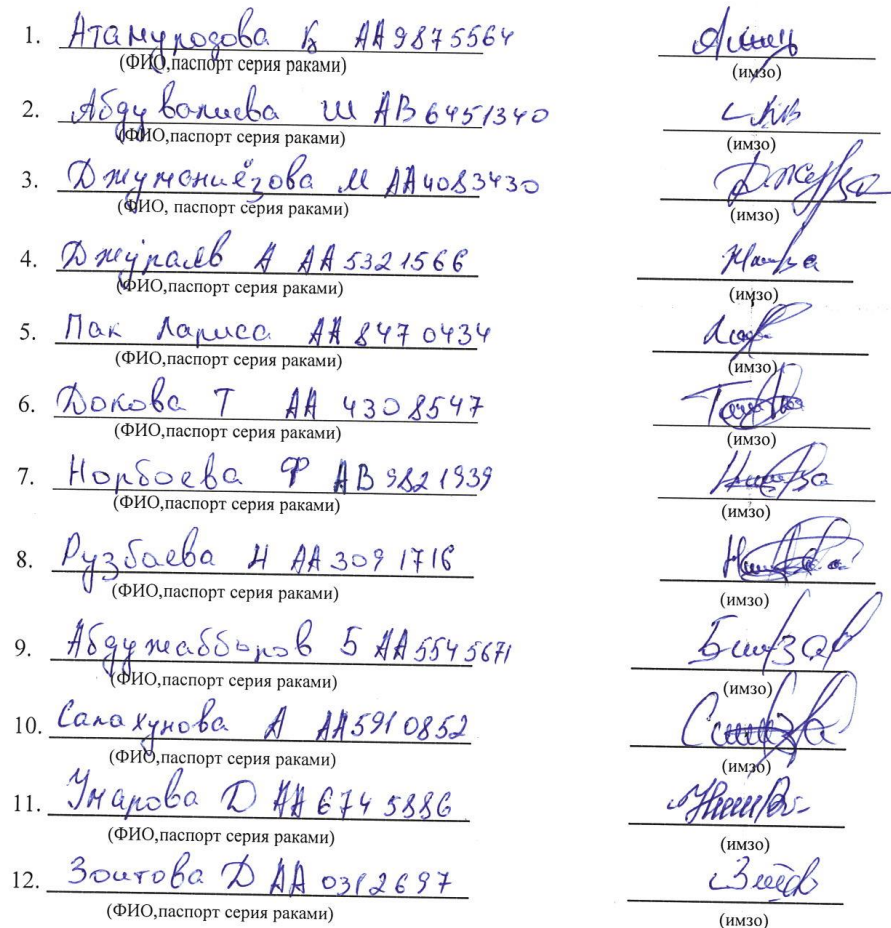 1. Атамуродова Б АА 9875564
(ФИО,паспорт серия раками) (имзо)
2. Абдувалиева Ш АВ 6451340
(ФИО,паспорт серия раками) (имзо)
3. Джуманиёзова М АА 4083430
(ФИО, паспорт серия раками) (имзо)
4. Джураев А АА 5321566
(ФИО,паспорт серия раками) (имзо)
5. Пак Лариса АА 8470434
(ФИО,паспорт серия раками) (имзо)
6. Докова Т АА 4308547
(ФИО,паспорт серия раками) (имзо)
7. Норбоева Ф АВ 9821939
(ФИО,паспорт серия раками) (имзо)
8. Рузбаева Н АА 3091716
(ФИО,паспорт серия раками) (имзо)
9. Абдужабборов Б АА 5545671
(ФИО,паспорт серия раками) (имзо)
10. Салахунова А АА 5910852
(ФИО,паспорт серия раками) (имзо)
11. Умарова Д АА 6745886
(ФИО,паспорт серия раками) (имзо)
12. Зоитова Д АА 0312697
(ФИО,паспорт серия раками) (имзо)